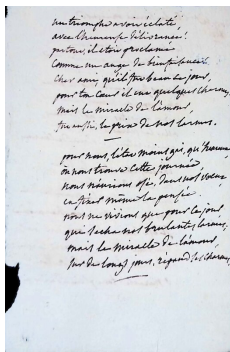 un triomphe avoit éclaté
avec l'heureuse délivrance!
partout, il étoit proclamé
comme un ange de bienfaisance.
cher ami, qu'il fut beau ce jour,
pour ton cœur il eut quelques charmes,
mais le miracle de l'amour,
fut aussi, le prix de nos larmes.
pour nous, l'être moins gai, qui
où nous trouve cette journée,
nous n'aurions osé, dans nos vœux
en fixer même la pensée.
nous ne vivions que pour ce jour
qui sécha nos brulantes larmes,
mais le miracle de l'amour,
sur de longs jours, répand ses charmes.